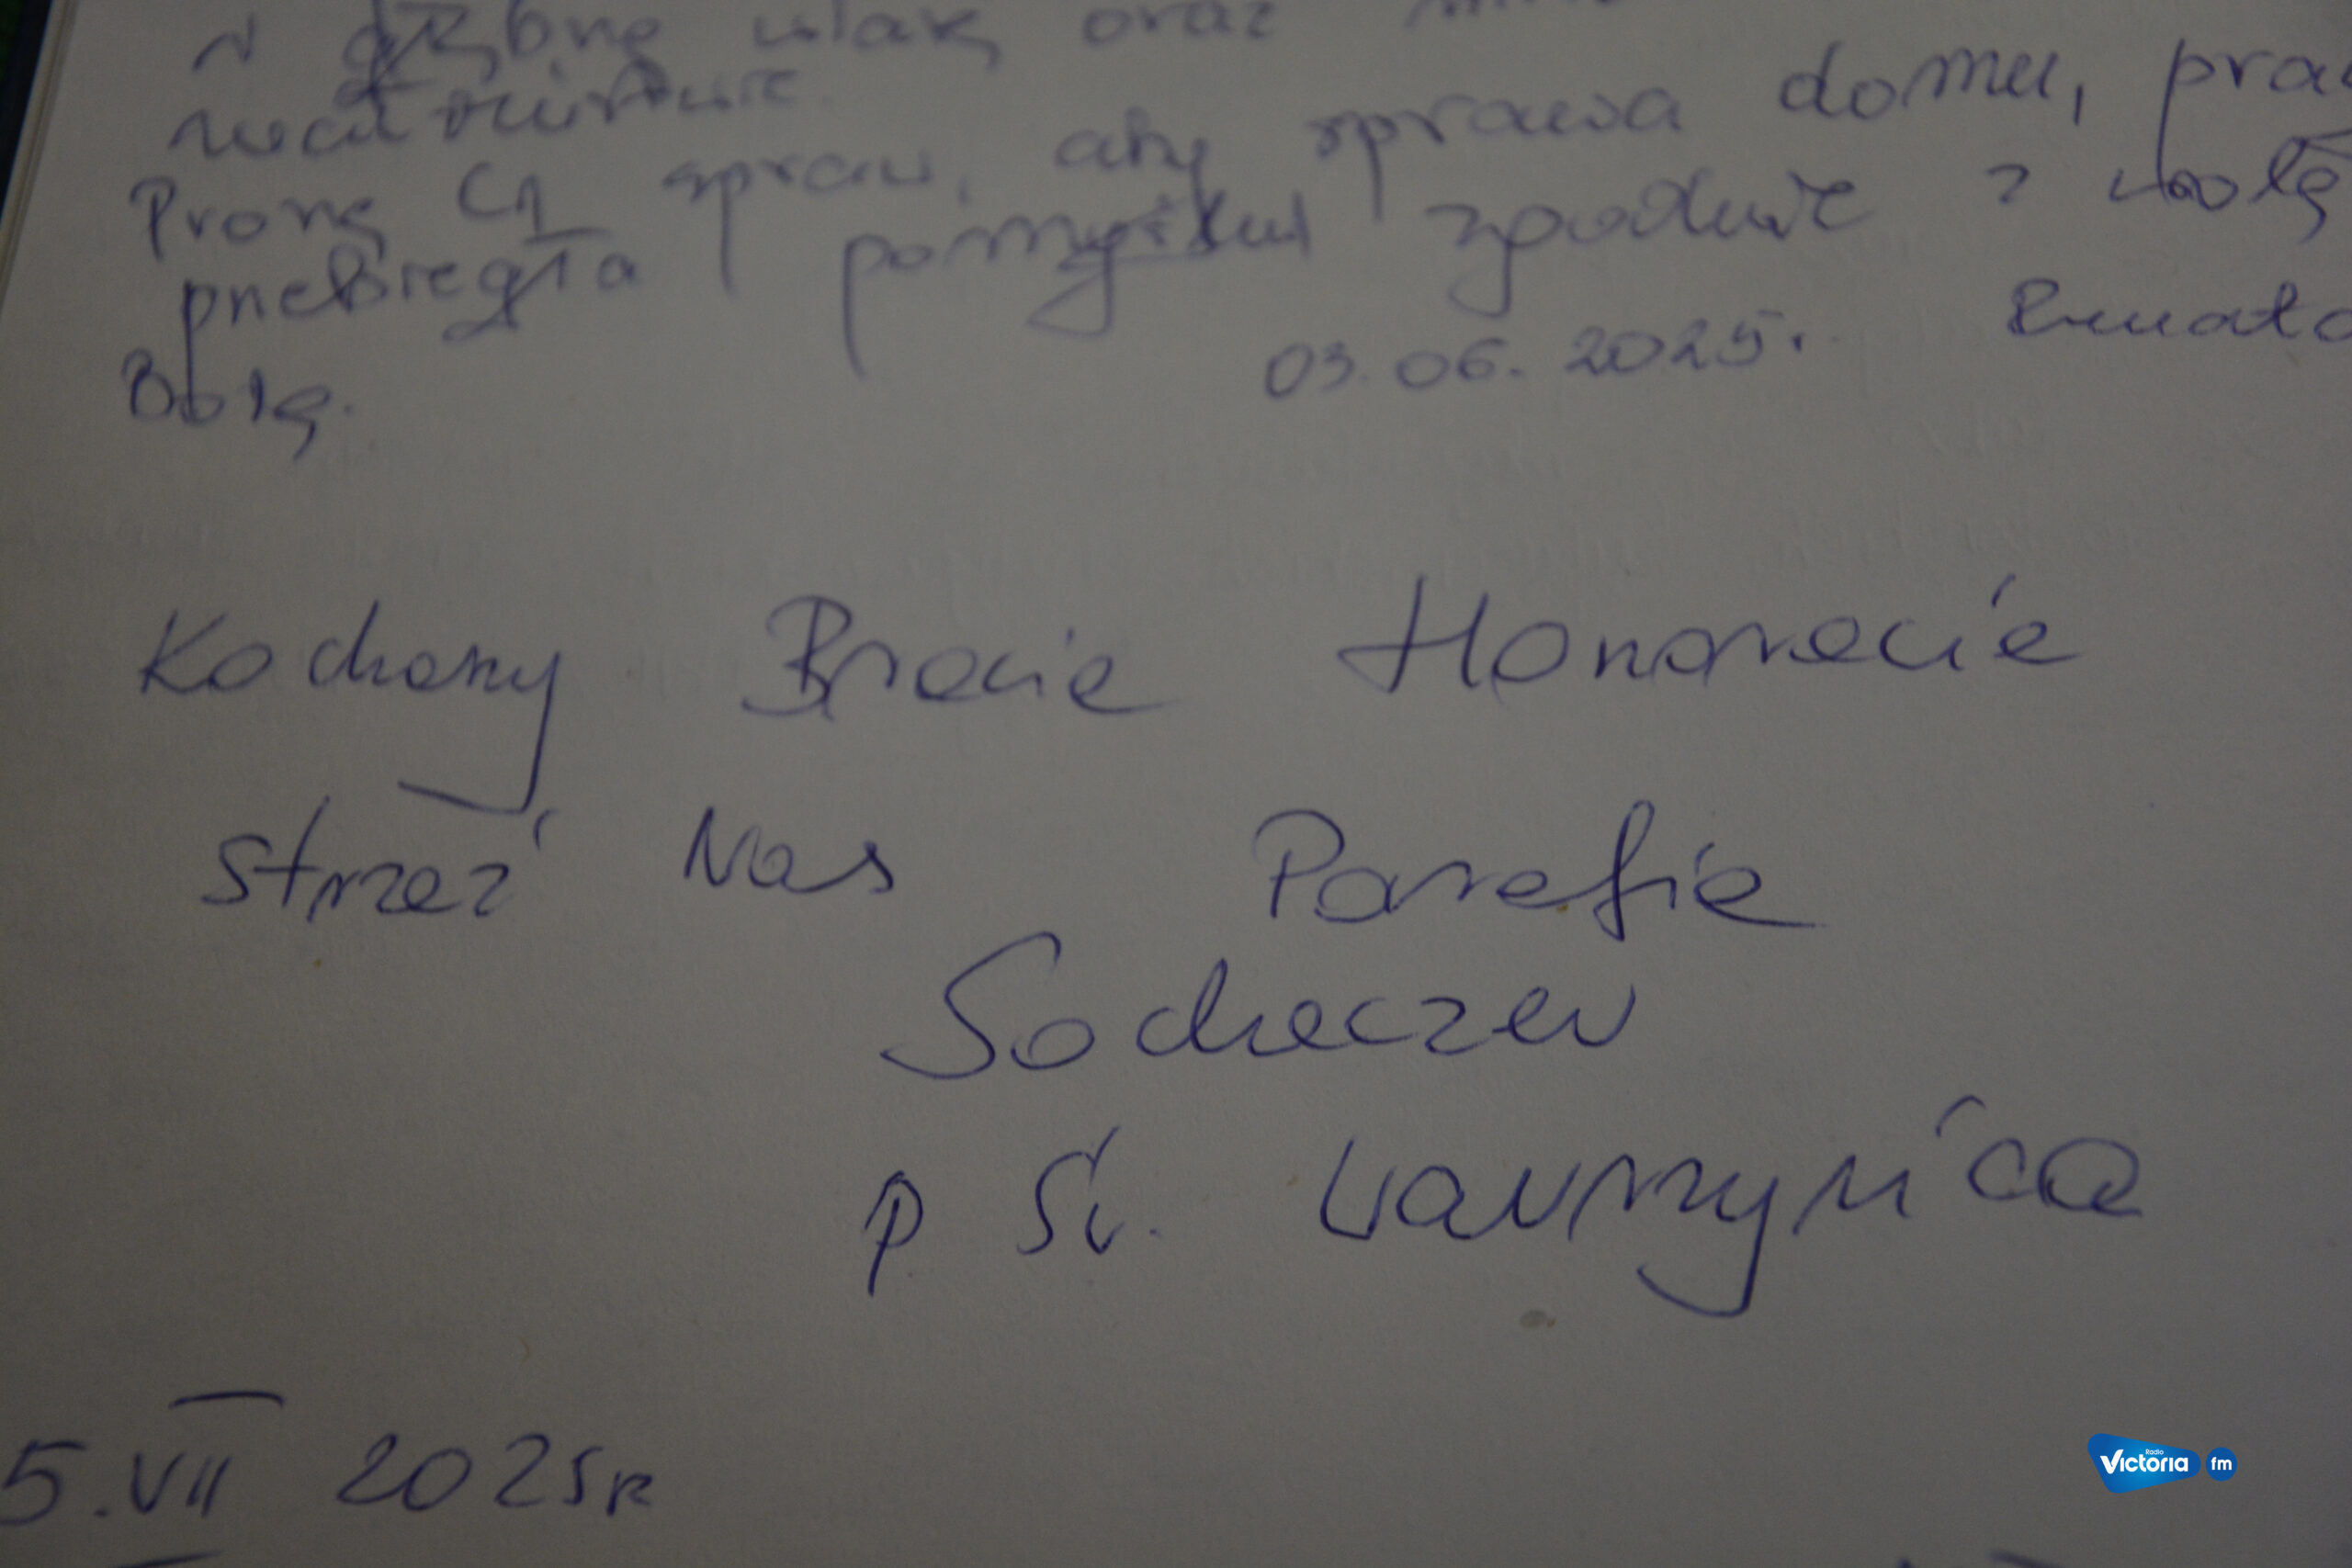 głębną wiarę oraz
Proszę Cię spraw, aby sprawa domu,
przebiegła pomyślnie zgodnie z wolą
Bożą.
03.06.2025. Renata
Kochany Bracie Honoracie
strzeż Nas Parafie
Sochaczew
p Św. Wawrzyńca
5.VII 2025r
Radio
Victoria fm